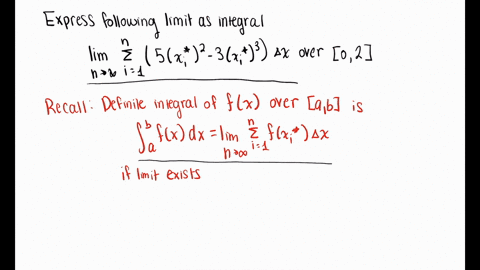 Express following limit as integral
lim n→∞ n Σ i=1 (5(xᵢ*)² - 3(xᵢ*)³) Δx over [0,2]
Recall: Definite integral of f(x) over [a,b] is
∫ₐᵇ f(x) dx = lim n→∞ n Σ i=1 f(xᵢ*) Δx
if limit exists